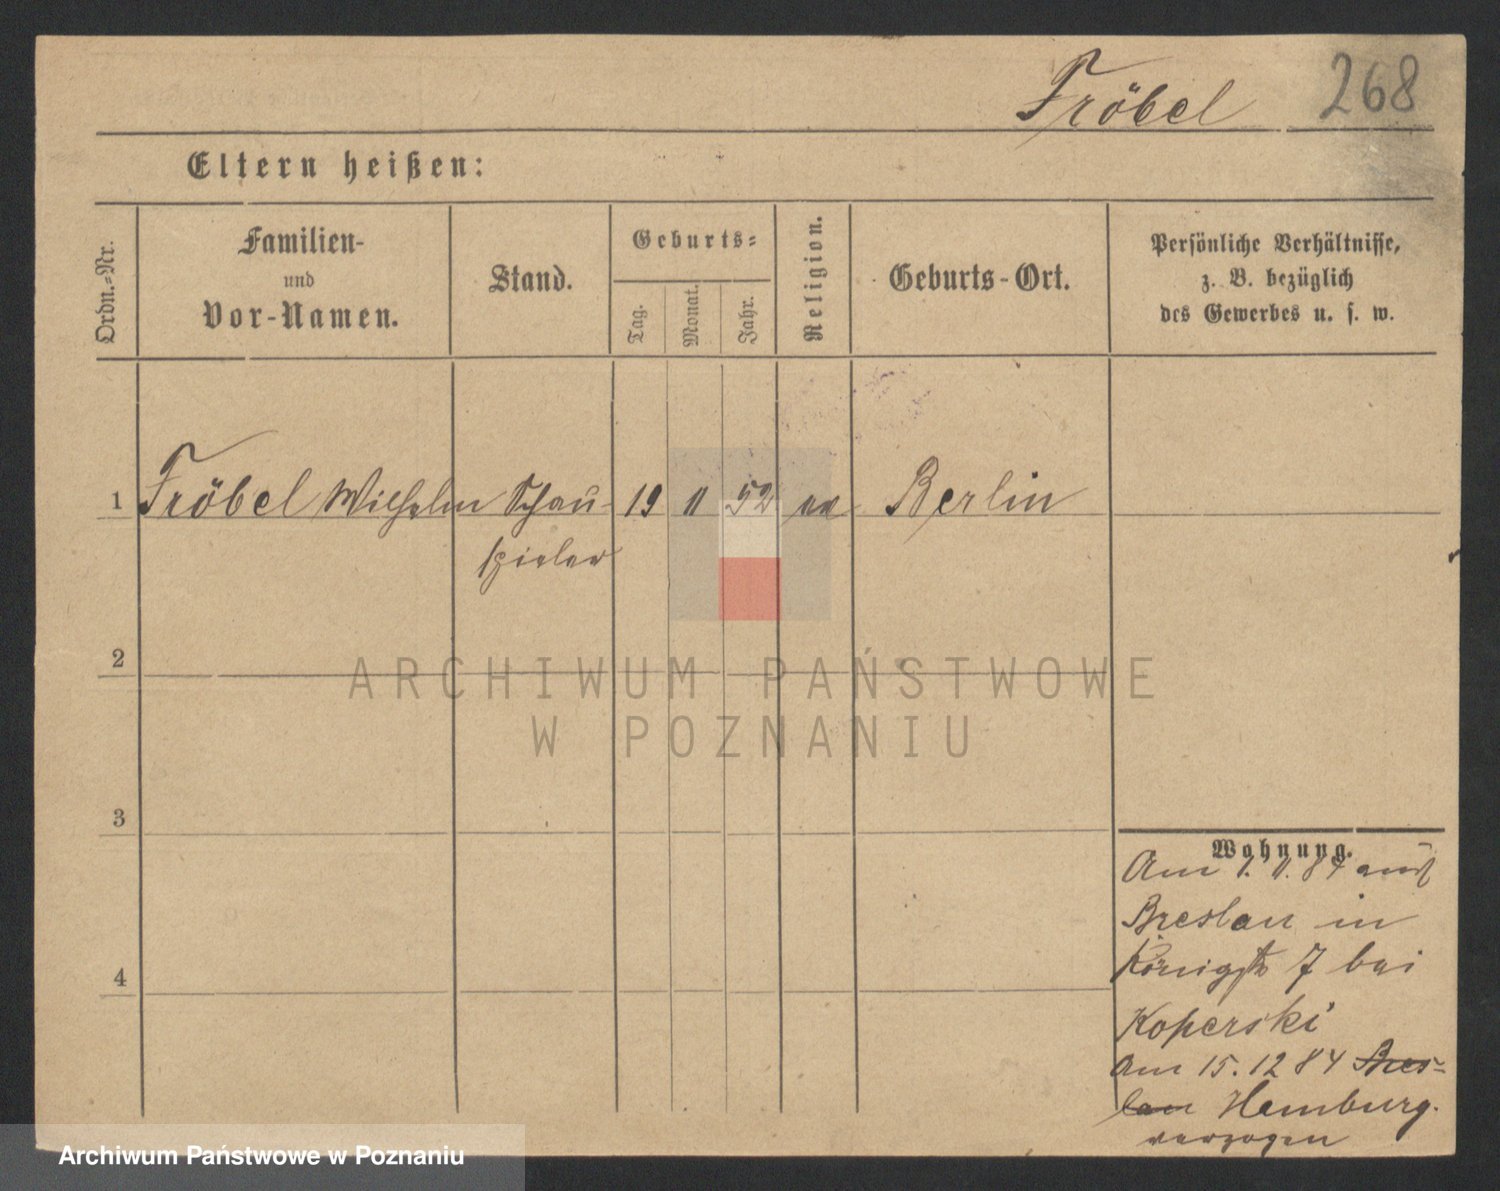 Fröbel 268
Eltern heißen:
Ordn.-Nr.
Familien-
und
Vor-Namen.
Stand.
Geburts-
Tag.
Monat.
Jahr.
Religion.
Geburts-Ort.
Persönliche Verhältnisse,
z. B. bezüglich
des Gewerbes u. s. w.
1 Fröbel Wilhelm Schau- 19 11 52 Berlin
spieler
2
ARCHIWUM PAŃSTWOWE
W POZNANIU
3
4
Wohnung.
Am 1. 11. 84 aus
Breslau in
Königstr 7 bei
Koperski
Am 15. 12 84 Bres-
lau Hamburg.
verzogen
Archiwum Państwowe w Poznaniu